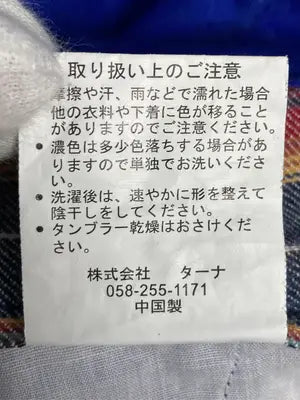 取り扱い上のご注意
摩擦や汗、雨などで濡れた場合
他の衣料や下着に色が移ること
がありますのでご注意ください。
● 濃色は多少色落ちする場合があ
りますので単独でお洗いくださ
い。
● 洗濯後は、速やかに形を整えて
陰干しをしてください。
● タンブラー乾燥はおさけくだ
さい。
株式会社　ターナ
058-255-1171
中国製